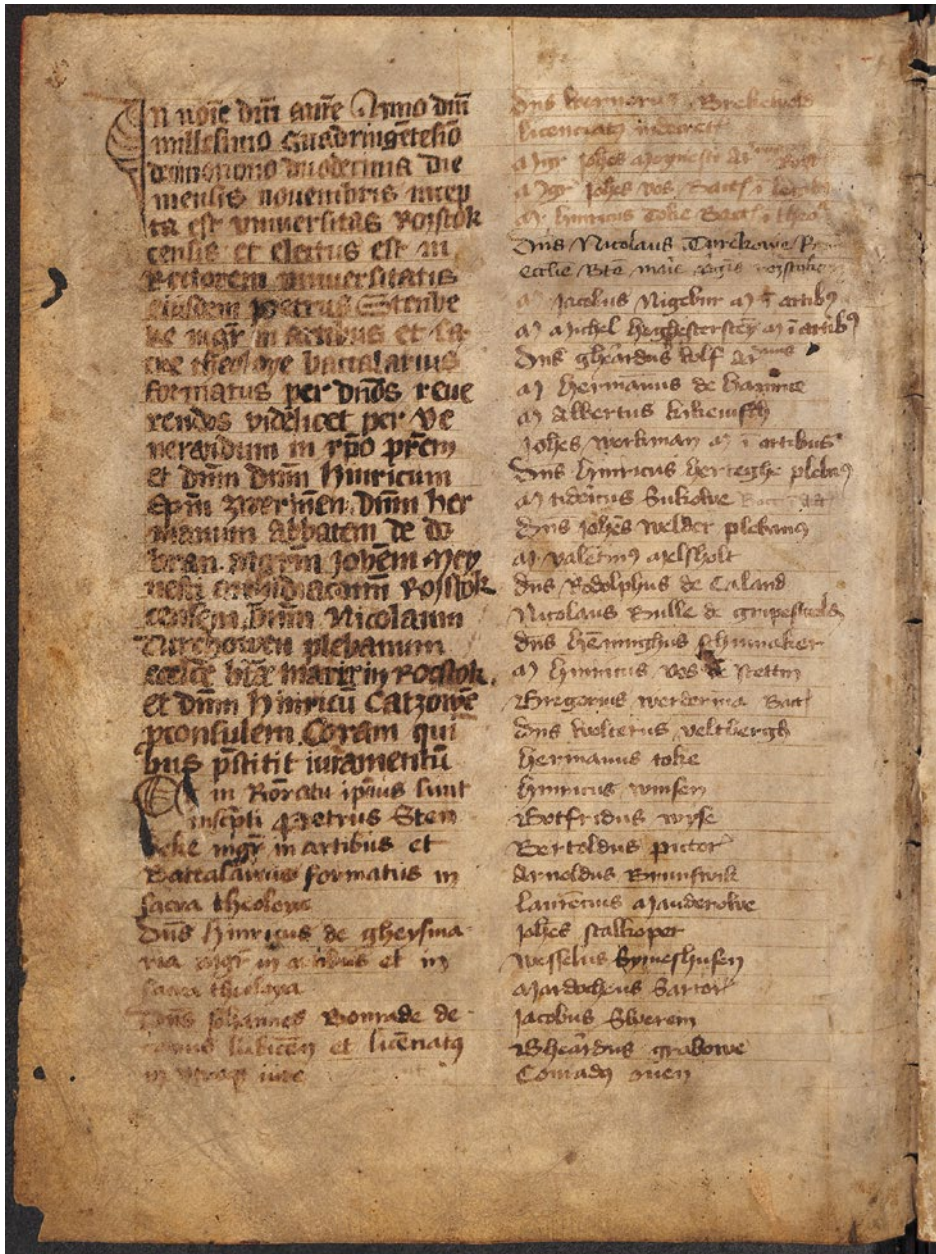 In noīe dnī amē Anno dnī
millesimo Quadringētesiō
decimonono duodecima die
mensis novembris incep
ta est vniuersitas Rostok
censis et electus est in
Rectorem vniuersitatis
eiusdem petrus Stenbe
ke mgr̄ in artibus et sa
cre theoloye baccalarius
formatus per dn̄os reue
rendos videlicet per ve
nerandum in xp̄o pr̄em
et dnm̄ dnm̄ hinricum
Ep̄m zwerinen̄. dnm̄ her
manum abbatem de do
bran. mgrm̄ Joh̄em Mey
nesti archidiaconū Rostok
censem, dnm̄ Nicolaum
Turchowen plebanum
eccl̄ie bt̄e marie in Rostok.
et dnm̄ hinricū Catzowē
pconsulem. Coram qui
bus p̄stitit iuramentū
Et in Rēoratu ip̄ius sunt
inscp̄ti Petrus Sten
beke mgr̄ in artibus et
Baccalarius formatus in
sacra theoloya
Dn̄s hinricus de gheysma
ria mgr̄ in artibus et in
sacra theoloya
Dn̄s Johannes Vonrade de
lubicen̄ et licēciatꝰ
in vtroqꝫ iure
Dn̄s wernerus Brekewold
licenciatꝰ in decret̄
Mgr̄ Joh̄es Meynesti
Mgr̄ Joh̄es vos Bacc̄
M̄ hinricus Toke Bacc̄ ī theo
Dn̄s Nicolaus Turekowe
eccl̄ie Bt̄e marie
M̄ Jacobus Nigebur M̄ ī artibꝰ
M̄ Michel M̄ ī artibꝰ
Dn̄s gherardus wlf
M̄ hermānus de hamme
M̄ Albertus
Joh̄es werkman M̄ ī artibus
Dn̄s hinricus hertegha plebanꝰ
M̄ tidericus Sukowe
dn̄s Joh̄es welder plebanꝰ
M̄ valētinꝰ axelsholt
dn̄s Rodolphus de Caland
Nicolaus Rulle de gripeswalꝭ
dn̄s hēninghus schumaker
M̄ hinricus vos de Stettin
Gregorius werdermā Bacc̄
dn̄s wolterus veltbergh
hermanus toke
hinricus winsen
Gotfridus wyse
Bertoldus pictor
Arneldus Brunswik
laurēcius Manderowe
Joh̄es stalkoper
wesselus Symeshusen
Mardocheus Sartor
Jacobus Swerem
Gherardus grabowe
Conradꝰ